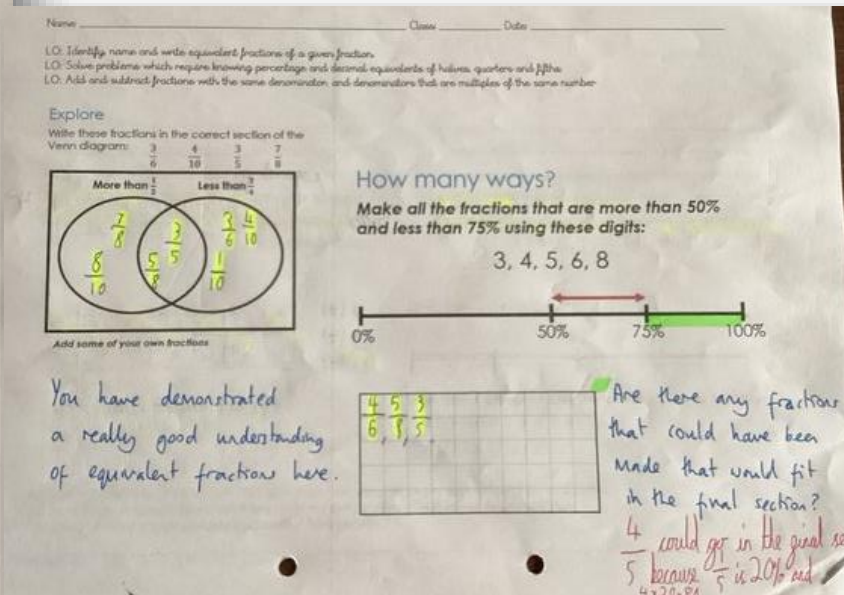 Name Class Date
LO: Identify name and write equivalent fractions of a given fraction
LO: Solve problems which require knowing percentage and decimal equivalents of halves, quarters and fifths
LO: Add and subtract fractions with the same denominator and denominators that are multiples of the same number
Explore
Write these fractions in the correct section of the
Venn diagram: 3/6 4/10 3/5 7/8
More than 1/2 Less than 3/4
7/8 3/5 3/6 4/10
8/10 5/8 1/10
Add some of your own fractions
How many ways?
Make all the fractions that are more than 50%
and less than 75% using these digits:
3, 4, 5, 6, 8
0% 50% 75% 100%
You have demonstrated
a really good understanding
of equivalent fractions here.
4/6, 5/8, 3/5
Are there any fractions
that could have been
made that would fit
in the final section?
4/5 could go in the final
because 1/5 is 20% and